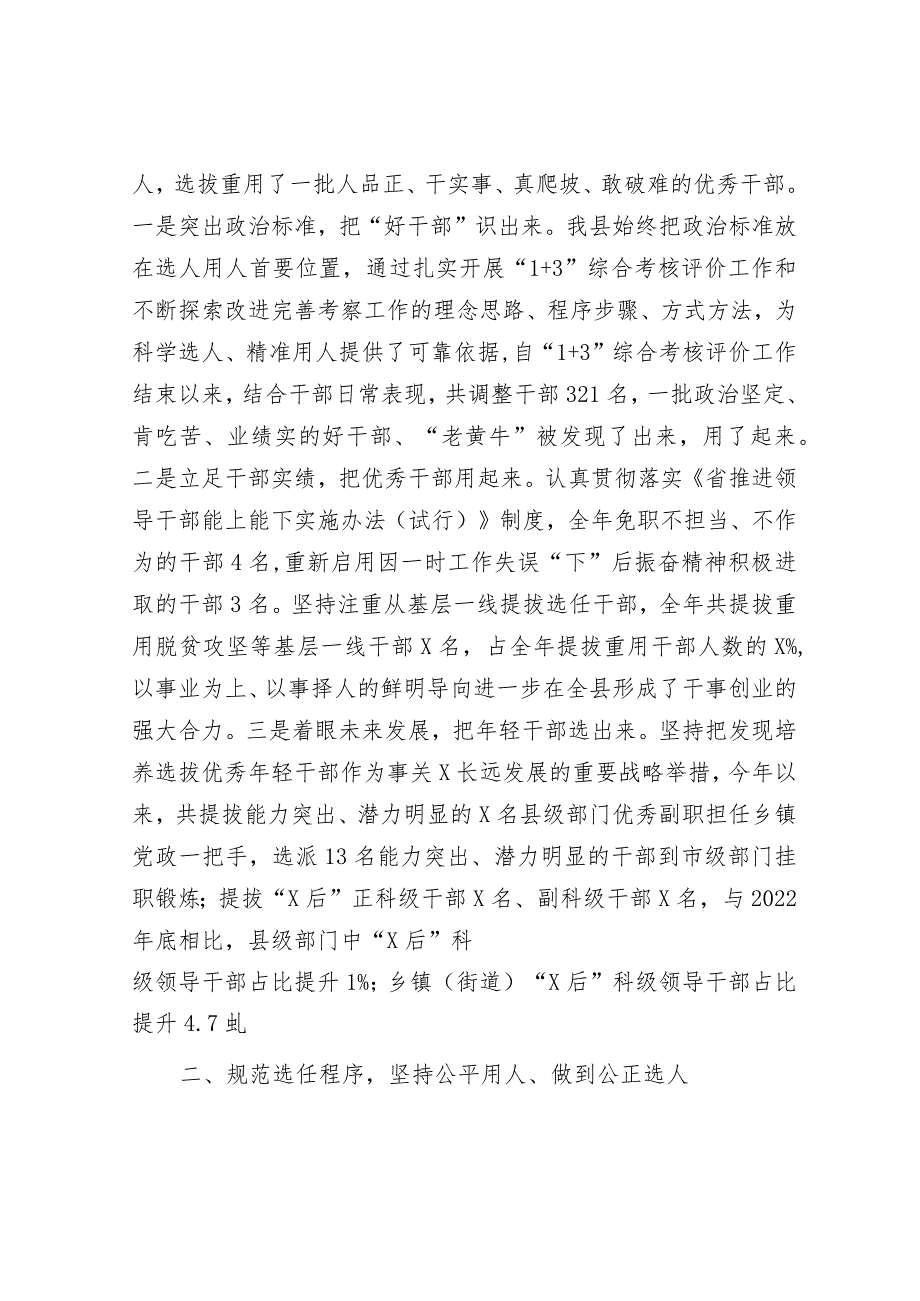 人，选拔重用了一批人品正、干实事、真爬坡、敢破难的优秀干部。
一是突出政治标准，把“好干部”识出来。我县始终把政治标准放
在选人用人首要位置，通过扎实开展“1+3”综合考核评价工作和
不断探索改进完善考察工作的理念思路、程序步骤、方式方法，为
科学选人、精准用人提供了可靠依据,自“1+3”综合考核评价工作
结束以来，结合干部日常表现，共调整干部321名，一批政治坚定、
肯吃苦、业绩实的好干部、“老黄牛”被发现了出来，用了起来。
二是立足干部实绩，把优秀干部用起来。认真贯彻落实《省推进领
导干部能上能下实施办法（试行）》制度，全年免职不担当、不作
为的干部4名,重新启用因一时工作失误“下”后振奋精神积极进
取的干部3名。坚持注重从基层一线提拔选任干部，全年共提拔重
用脱贫攻坚等基层一线干部X名，占全年提拔重用干部人数的X%,
以事业为上、以事择人的鲜明导向进一步在全县形成了干事创业的
强大合力。三是着眼未来发展，把年轻干部选出来。坚持把发现培
养选拔优秀年轻干部作为事关X长远发展的重要战略举措，今年以
来，共提拔能力突出、潜力明显的X名县级部门优秀副职担任乡镇
党政一把手，选派13名能力突出、潜力明显的干部到市级部门挂
职锻炼；提拔“X后”正科级干部X名、副科级干部X名，与2022
年底相比，县级部门中“X后”科
级领导干部占比提升1%；乡镇（街道）“X后”科级领导干部占比
提升4.7虬
二、规范选任程序，坚持公平用人、做到公正选人